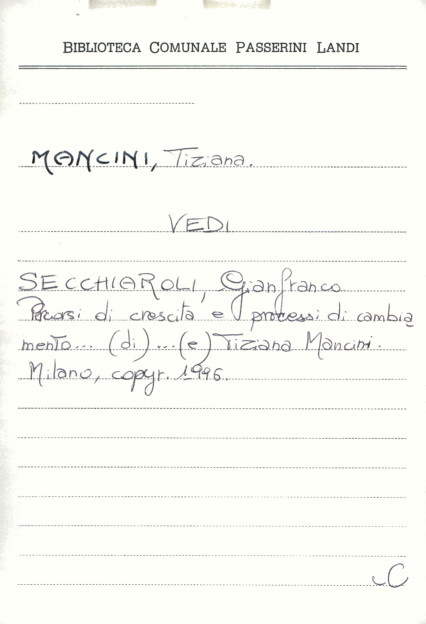 BIBLIOTECA COMUNALE PASSERINI LANDI
MANCINI, Tiziana.
VEDI
SECCHIAROLI, Gianfranco
Percorsi di crescita e processi di cambia
mento... (di)...(e) Tiziana Mancini.
Milano, copyr. 1996.
C